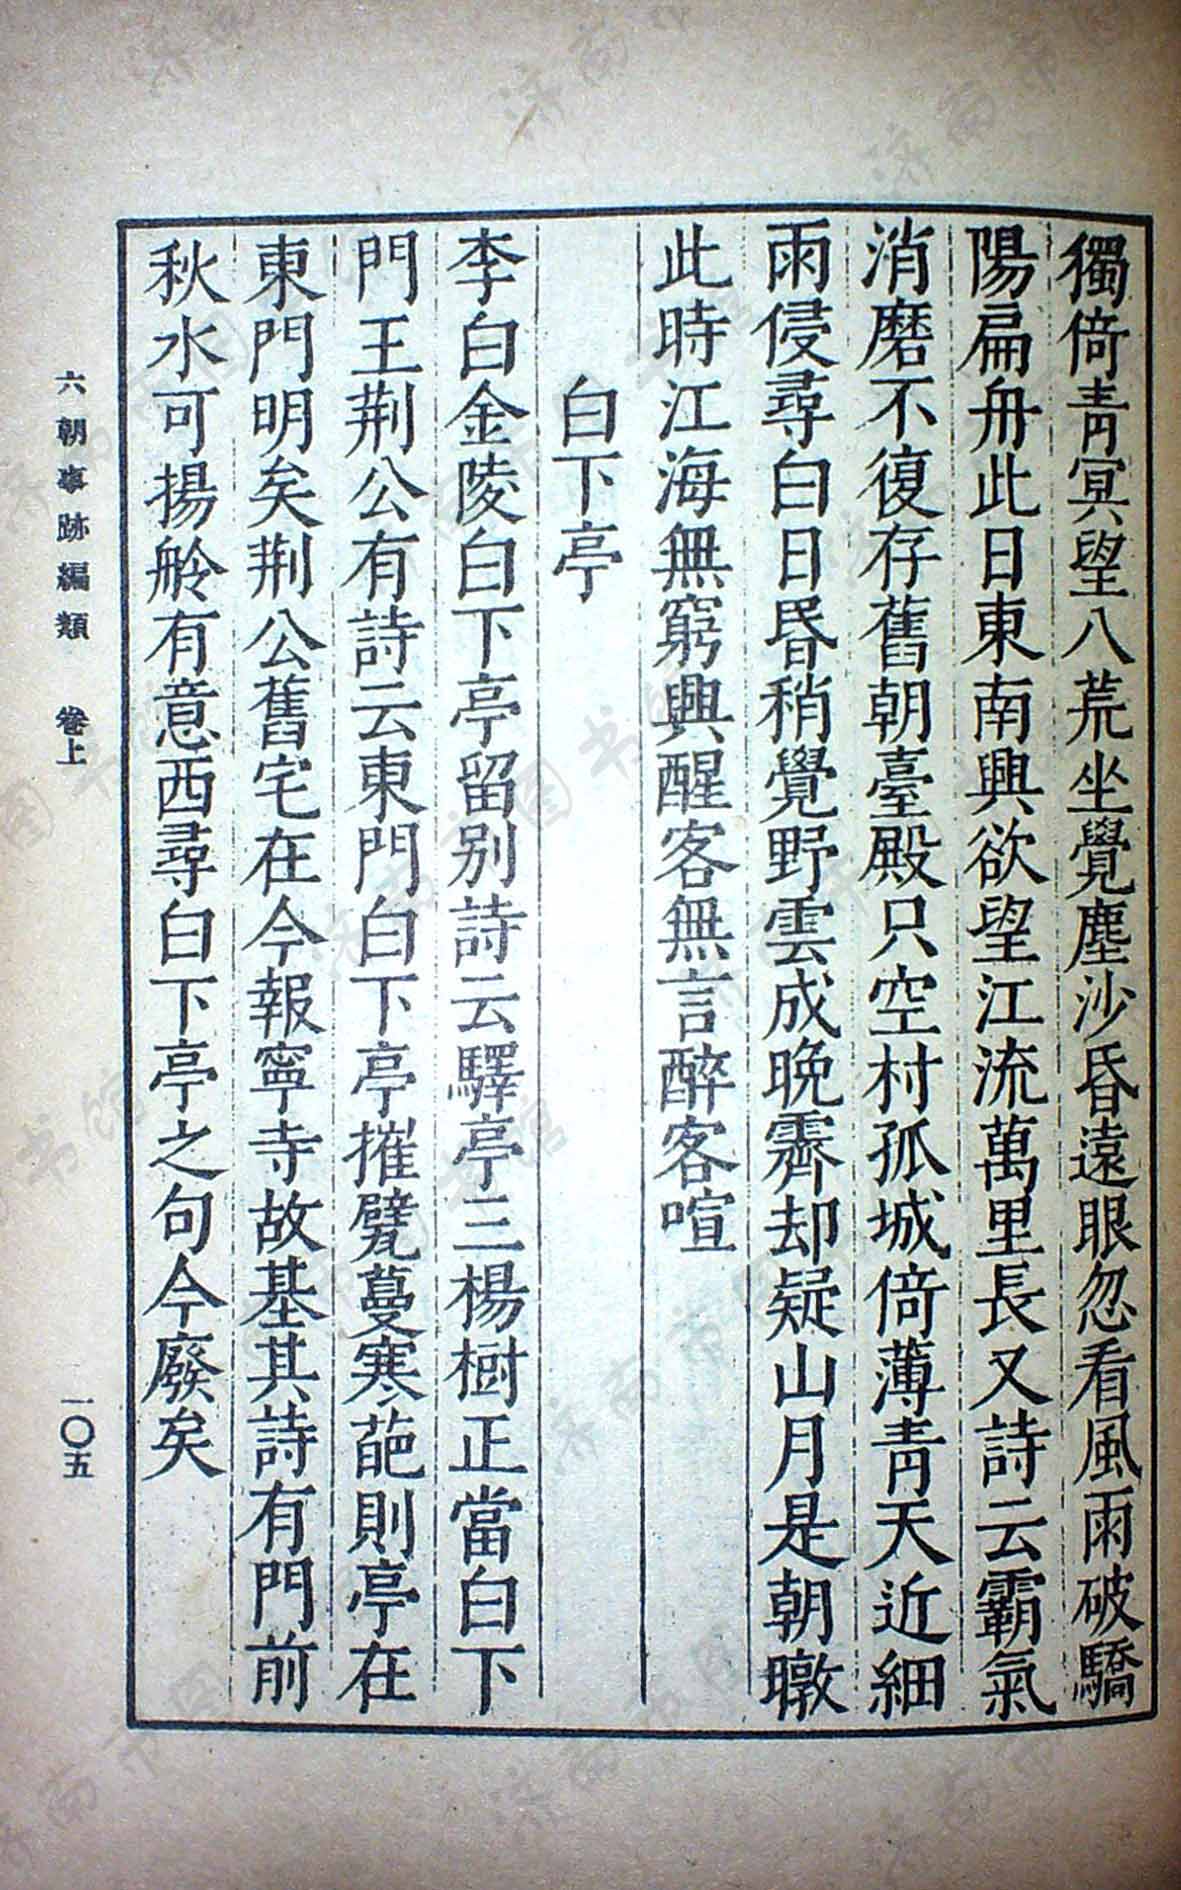 獨倚青冥望八荒坐覺塵沙昏遠眼忽看風雨破驕
陽扁舟此日東南興欲望江流萬里長又詩云霸氣
消磨不復存舊朝臺殿只空村孤城倚薄青天近細
雨侵尋白日昏稍覺野雲成晚霽却疑山月是朝暾
此時江海無窮興醒客無言醉客喧
白下亭
李白金陵白下亭留别詩云驛亭三楊樹正當白下
門王荆公有詩云東門白下亭摧甓蔓寒葩則亭在
東門明矣荆公舊宅在今報寧寺故基其詩有門前
秋水可揚舲有意西尋白下亭之句今廢矣
六朝事跡編類 卷上
一〇五